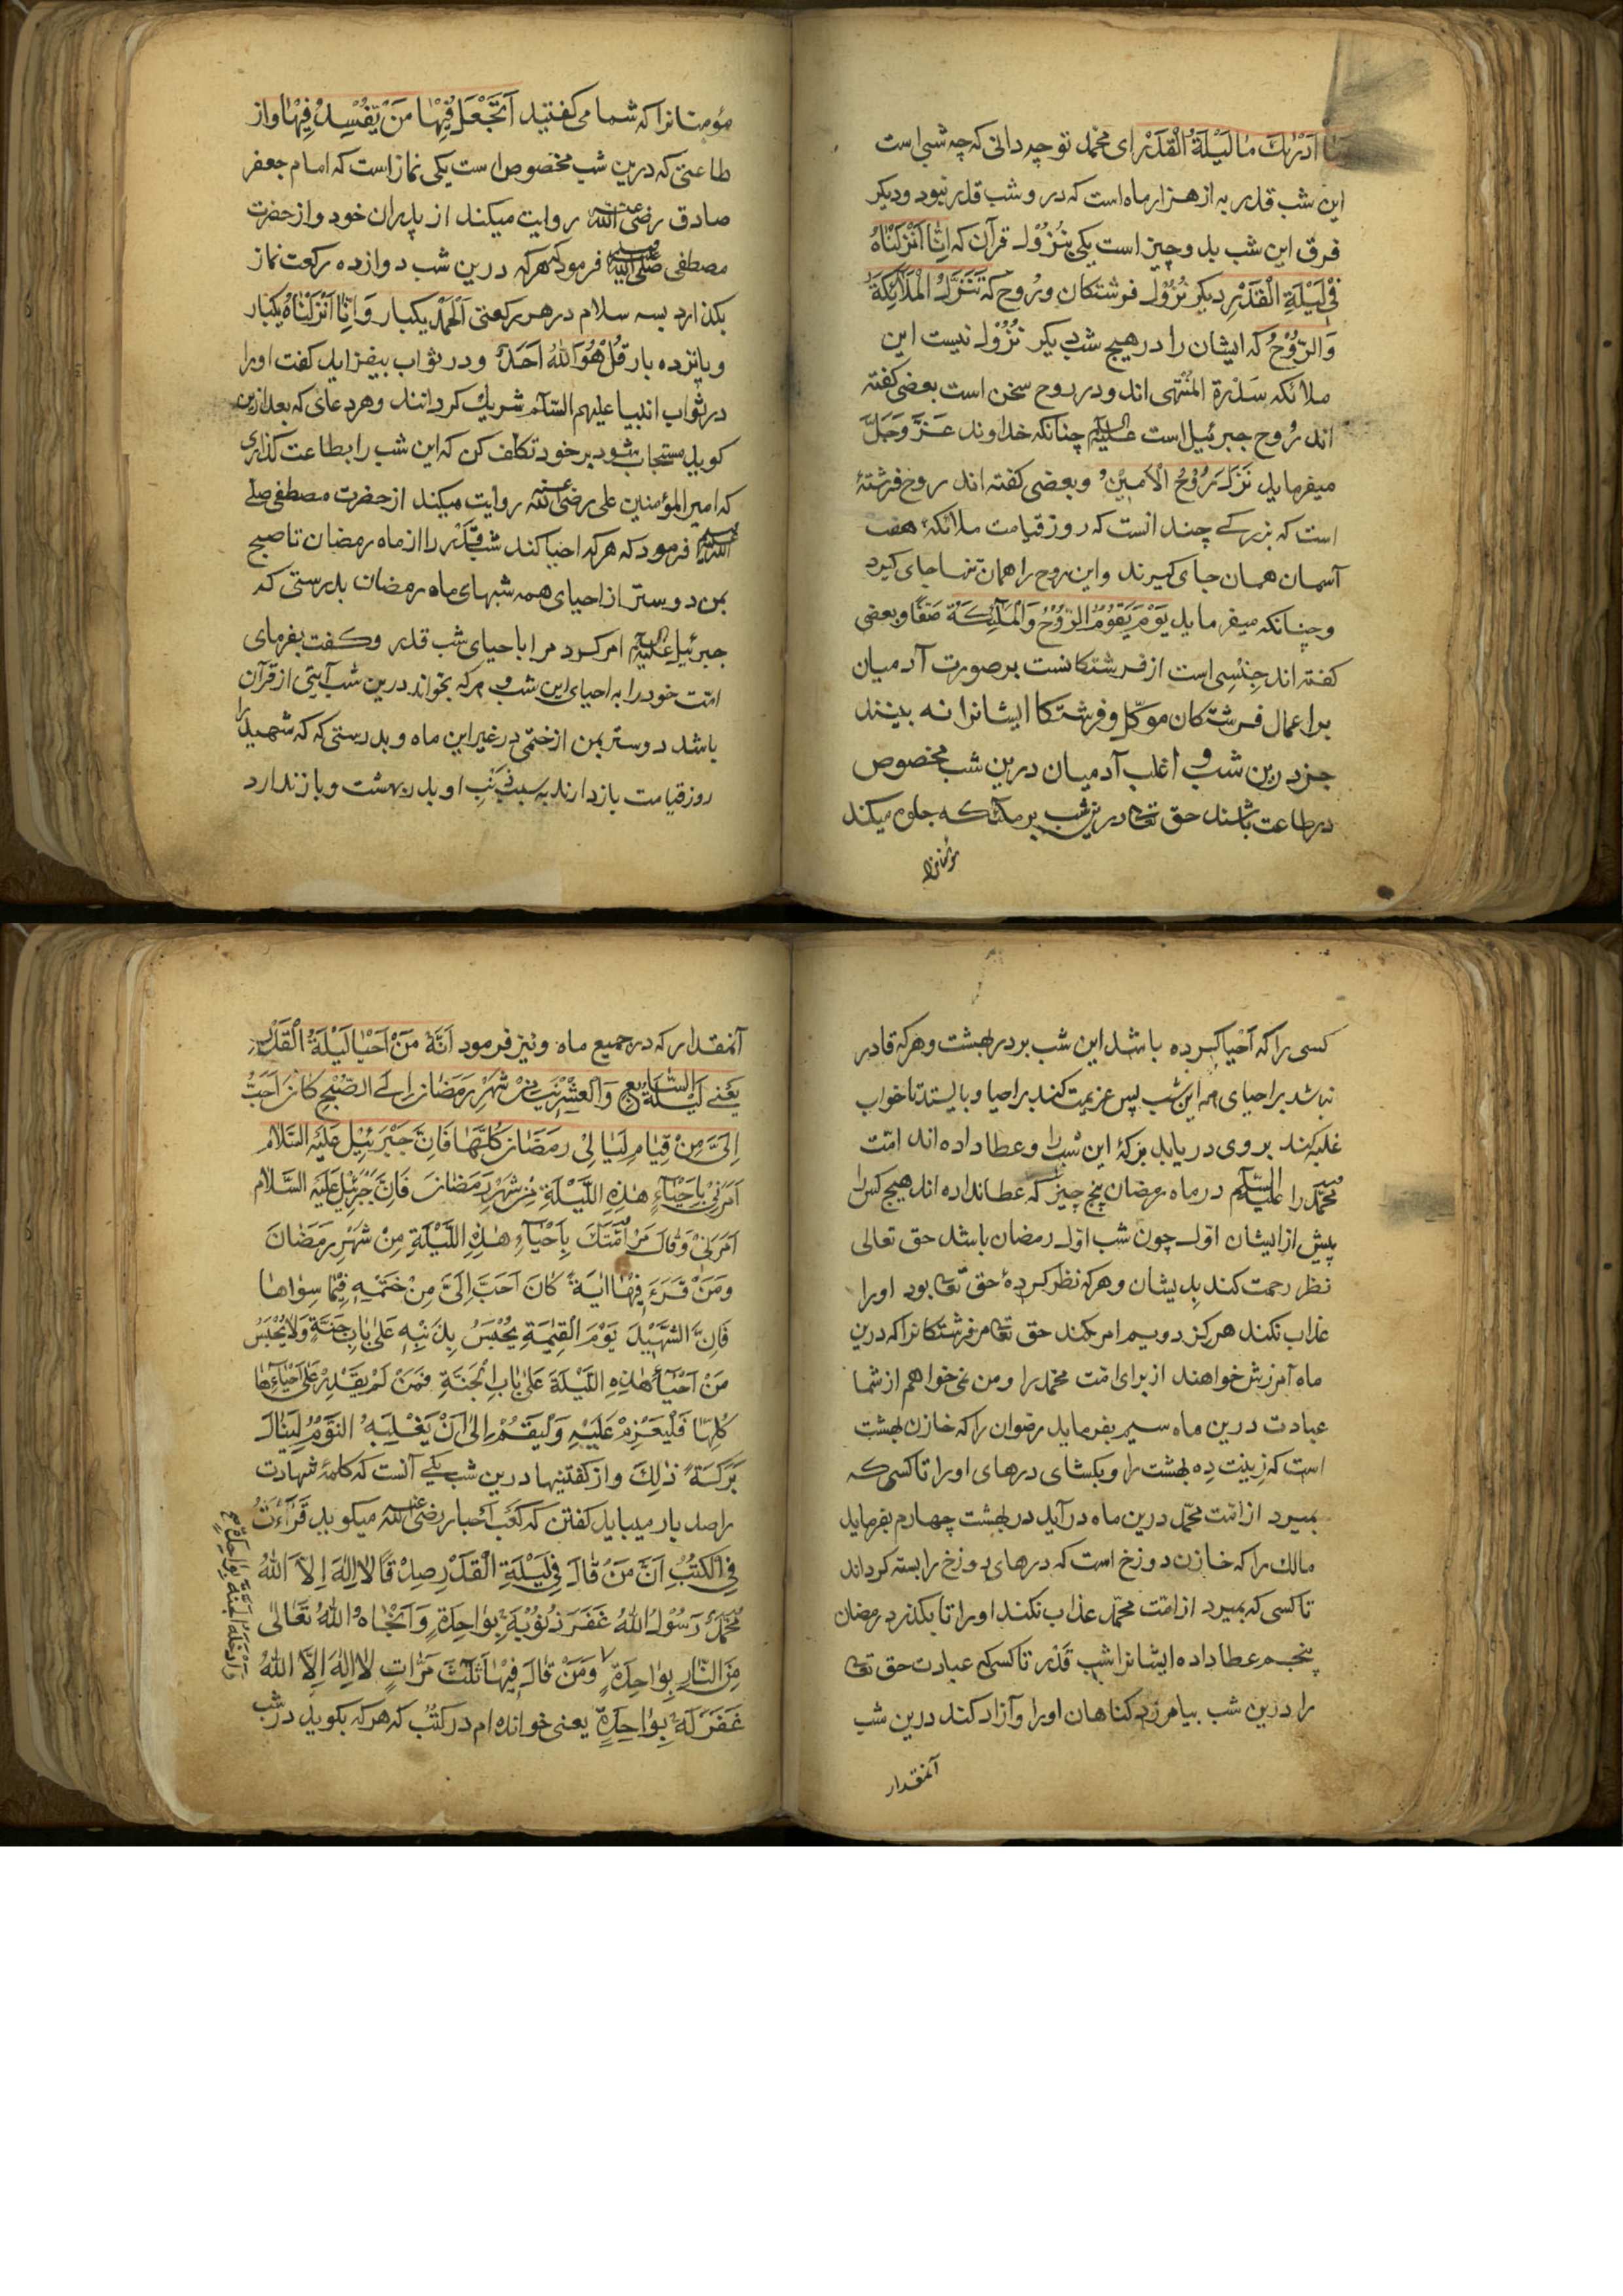 ما ادریك ما لیلة القدر ای محمد تو چه دانی که چه شبی است
این شب قدر به از هزار ماه است که در و شب قدر نبود و دیکر
فرق این شب بدو چیز است یکی بنزول قرآن که انا انزلناه
فی لیلة القدر دیکر نزول فرشتکان و روح که تنزل الملائکة
والروح که ایشان را در هیچ شب دیکر نزول نیست این
ملائکه سدرة المنتهی اند و در روح سخن است بعضی کفته
اند روح جبرئیل است علیه السلام چنانکه خداوند عز وجل
میفرماید نزل روح الامین و بعضی کفته اند روح فرشتهٔ
است که بزرکے چند انست که روز قیامت ملائکهٔ هفت
آسمان همان جای کیرند و این روح را همان تنها جای کیرد
و چنانکه میفرماید یوم یقوم الروح والملئکة صفا و بعضی
کفته اند جنسی است از فرشتکانست بر صورت آدمیان
بر اعمال فرشتکان موکل و فرشتکا ایشانرا نه بینند
جز درین شب و اغلب آدمیان درین شب مخصوص
در طاعت باشند حق تعا درین شب بر ملئکه جلوه میکند
مؤمنانرا
مؤمنانرا که شما می کفتید اتجعل فیها من یفسد فیها و از
طاعتی که درین شب مخصوص است یکی نماز است که امام جعفر
صادق رضی الله عنه روایت میکند از پدران خود و از حضرت
مصطفی صلی الله علیه وسلم فرمود که هرکه درین شب دوازده رکعت نماز
بکذارد بسه سلام در هر رکعتی الحمد یکبار و انا انزلناه یکبار
و پانزده بار قل هو الله احد و در ثواب بیفزاید کفت او را
در ثواب انبیا علیهم السلام شریك کردانند و هر دعای که بعد ازین
کوید مستجاب شود بر خود تکلف کن که این شب را بطاعت کذاری
که امیر المؤمنین علی رضی الله عنه روایت میکند از حضرت مصطفی صلی
الله علیه وسلم فرمود که هرکه احیا کند شب قدر را از ماه رمضان تا صبح
بمن دوستر از احیای همه شبهای ماه رمضان بدرستی که
جبرئیل علیه السلام امر کرد مرا باحیای شب قدر و کفت بفرمای
امت خود را به احیای این شب و هرکه بخواند درین شب آیتی از قرآن
باشد دوستر بمن از ختمی در غیر این ماه و بدرستی که که شهید را
روز قیامت باز دارند به سبب ذنب او بدر بهشت و باز ندارد
کسی را که احیا کرده باشد این شب بر در بهشت و هرکه قادر
نباشد بر احیای همه این شب پس عزیمت کند بر احیا و بایستد تا خواب
غلبه کند بروی دریابد برکهٔ این شب را و عطا داده اند امت
محمد را علیه السلام در ماه رمضان پنج چیز که عطا نداده اند هیچ کس را
پیش از ایشان اول چون شب اول رمضان باشد حق تعالی
نظر رحمت کند بدیشان و هرکه نظر کردهٔ حق تعا بود او را
عذاب نکند هرکز دویم امر کند حق تعا مر فرشتکانرا که درین
ماه آمرزش خواهند از برای امت محمد را و من نمی خواهم از شما
عبادت درین ماه سیم بفرماید رضوان را که خازن بهشت
است که زینت ده بهشت را و بکشای درهای او را تا کسی که
بمیرد از امت محمد درین ماه در آید در بهشت چهارم بفرماید
مالك را که خازن دوزخ است که درهای دوزخ را بسته کرداند
تا کسی که بمیرد از امت محمد عذاب نکند او را تا بکذرد رمضان
پنجم عطا داده ایشانرا شب قدر تا کسی که عبادت حق تعا
را درین شب بیامرزد کناهان او را و آزاد کند درین شب
آنمقدار
آنمقدار که در جمیع ماه و نیز فرمود انه من احیا لیلة القدر
یعنے لیلة السابع والعشرین من شهر رمضان الی الصبح کان احب
الی من قیام لیالی رمضان کلها فان جبرئیل علیه السلام
امرنی باحیاء هذه اللیلة من شهر رمضان فان جبرئیل علیه السلام
امرنی وقال مر امتك باحیاء هذه اللیلة من شهر رمضان
ومن قرء فیها ایة کان احب الی من ختمه فیما سواها
فان الشهید یوم القیمة یحبس بذنبه علی باب جنة ولا یحبس
من احیا هذه اللیلة علی باب الجنة فمن لم یقدر علی احیاءها
کلها فلیعزم علیه ولیقم الی ان یغلبه النوم لینال
برکة ذلك و از کفتنیها درین شب یکے آنست که کلمهٔ شهادت
را صد بار میباید کفتن که کعب احبار رضی الله عنه میکوید قرأت
فی الکتب ان من قال فی لیلة القدر صدقا لا اله الا الله
محمد رسول الله غفر ذنوبه بواحدة وانجاه الله تعالی
من النار بواحدة ومن قال فیها ثلث مرات لا اله الا الله
غفر له بواحدة یعنی خوانده ام در کتب که هرکه بکوید در شب
وادخله الجنة بواحدة صح